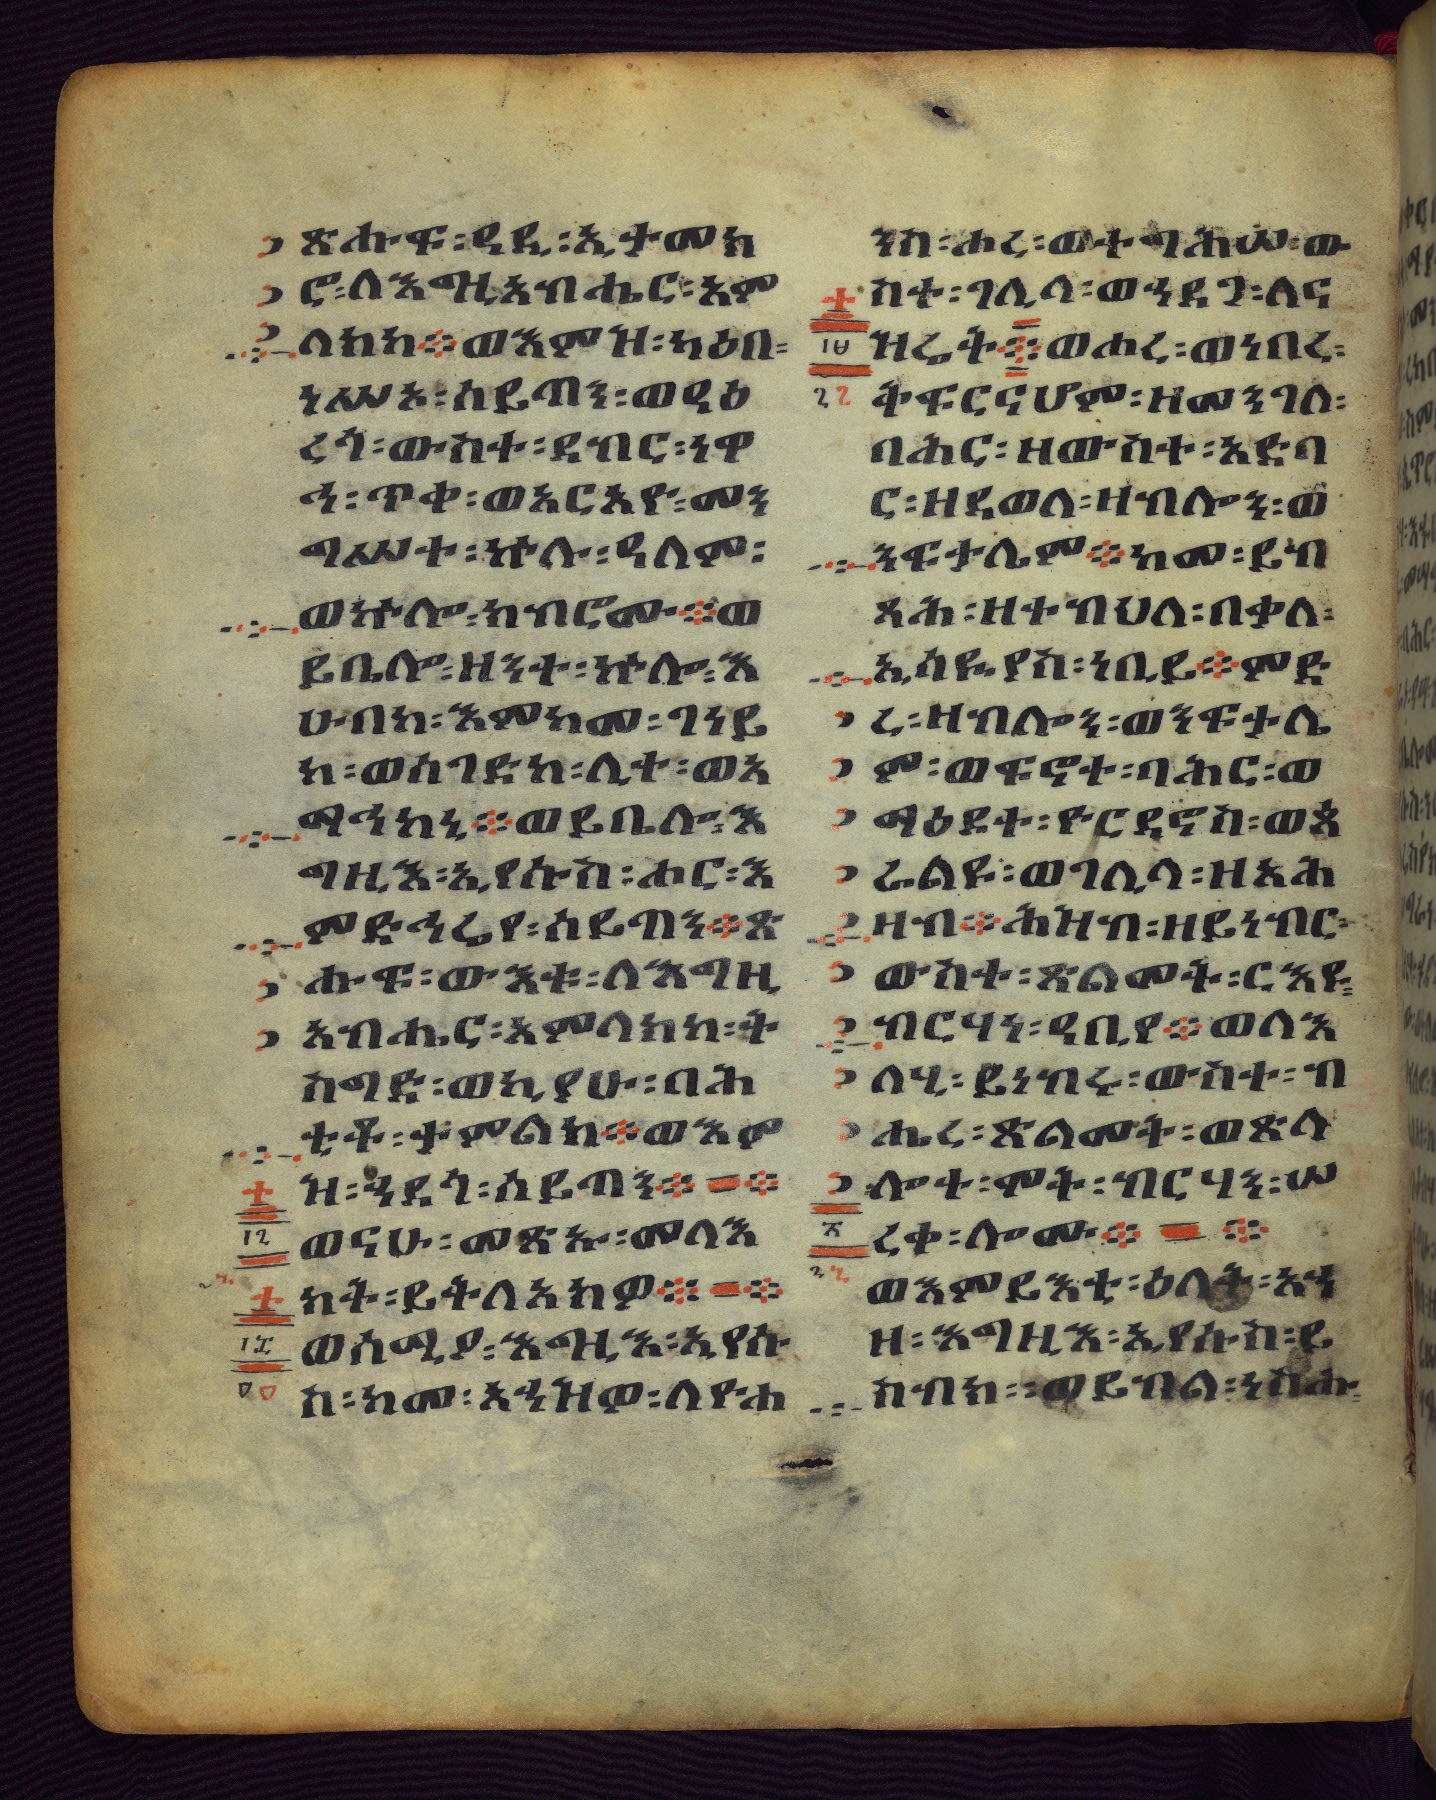 ጽሑፍ፡ዓዲ፡ኢተመክ
ሮ፡ለእግዚአብሔር፡አም
ላክከ፨ወእምዝ፡ካዕበ፡
ነሥአ፡ሰይጣን፡ወዓዕ
ረጎ፡ውስተ፡ደብር፡ነዋ
ኅ፡ጥቀ፡ወአርአዮ፡መን
ግሥተ፡ኵሉ፡ዓለም፡
ወኵሎ፡ክብሮሙ፨ወ
ይቤሎ፡ዘንተ፡ኵሎ፡እ
ሁበከ፡እምከመ፡ገነይ
ከ፡ወሰገድከ፡ሊተ፡ወአ
ማኅከኒ፨ወይቤሎ፡እ
ግዚእ፡ኢየሱስ፡ሑር፡እ
ምድኅሬየ፡ሰይጣን፨ጽ
ሑፍ፡ውእቱ፡ለእግዚ
አብሔር፡አምላክከ፡ት
ስግድ፡ወኪያሁ፡ባሕ
ቲቶ፡ታምልክ፨ወእም
ዝ፡ኀደጎ፡ሰይጣን፨፨
፲፩
ወናሁ፡መጽኡ፡መላእ
ክት፡ይትለአክዎ፨፨
፲፪
ወሰሚዖ፡እግዚእ፡ኢየሱ
ስ፡ከመ፡አኀዝዎ፡ለዮሐ
ንስ፡ሐረ፡ወተግሕሠ፡ው
ስተ፡ገሊላ፡ወኀደጋ፡ለና
ዝሬት፨ወሐረ፡ወነበረ፡
ቅፍርናሆም፡ዘመንገለ፡
ባሕር፡ዘውስተ፡አድባ
ር፡ዘደወለ፡ዛብሎን፡ወ
ንፍታሌም፨ከመ፡ይብ
ጻሕ፡ዘተብህለ፡በቃለ፡
ኢሳይያስ፡ነቢይ፨ምድ
ረ፡ዛብሎን፡ወንፍታሌ
ም፡ወፍኖተ፡ባሕር፡ወ
ማዕደተ፡ዮርዳኖስ፡ወጰ
ራልያ፡ወገሊላ፡ዘአሕ
ዛብ፨ሕዝብ፡ዘይነብር፡
ውስተ፡ጽልመት፡ርእየ፡
ብርሃነ፡ዓቢየ፨ወለእ
ለሂ፡ይነብሩ፡ውስተ፡ብ
ሔረ፡ጽልመት፡ወጽላ
ሎተ፡ሞት፡ብርሃን፡ሠ
ረቀ፡ሎሙ፨፨
ወእምይእቲ፡ዕለት፡አኀ
ዘ፡እግዚእ፡ኢየሱስ፡ይ
ስብክ፡ወይብል፡ነስሑ፡